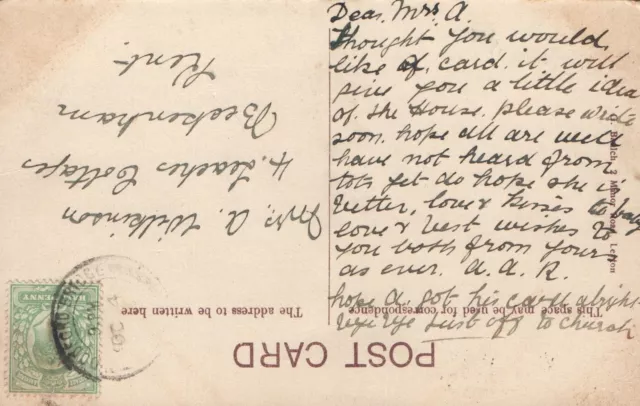 Dear Mrs A.
thought you would
like a card. it will
give you a little idea
of the House. please write
soon. hope all are well
have not heard from
tots yet do hope she is
better, love & kisses to baby
love & best wishes to
you both from yours
as ever. A. A. R.
hope A. got his card alright
bye bye just off to church
Mrs. A. Wilkinson
4. Leaches Cottages
Beckenham
Kent.
POST CARD
This space may be used for correspondence
The address to be written here
HALFPENNY